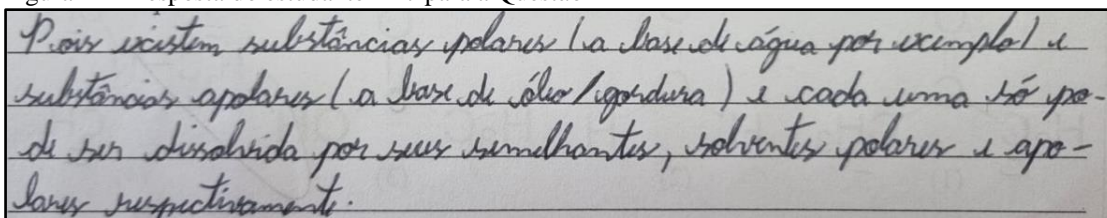 Pois existem substâncias polares (a base de água por exemplo) e
substâncias apolares (a base de óleo/gordura) e cada uma só po-
de ser dissolvida por seus semelhantes, solventes polares e apo-
lares respectivamente.